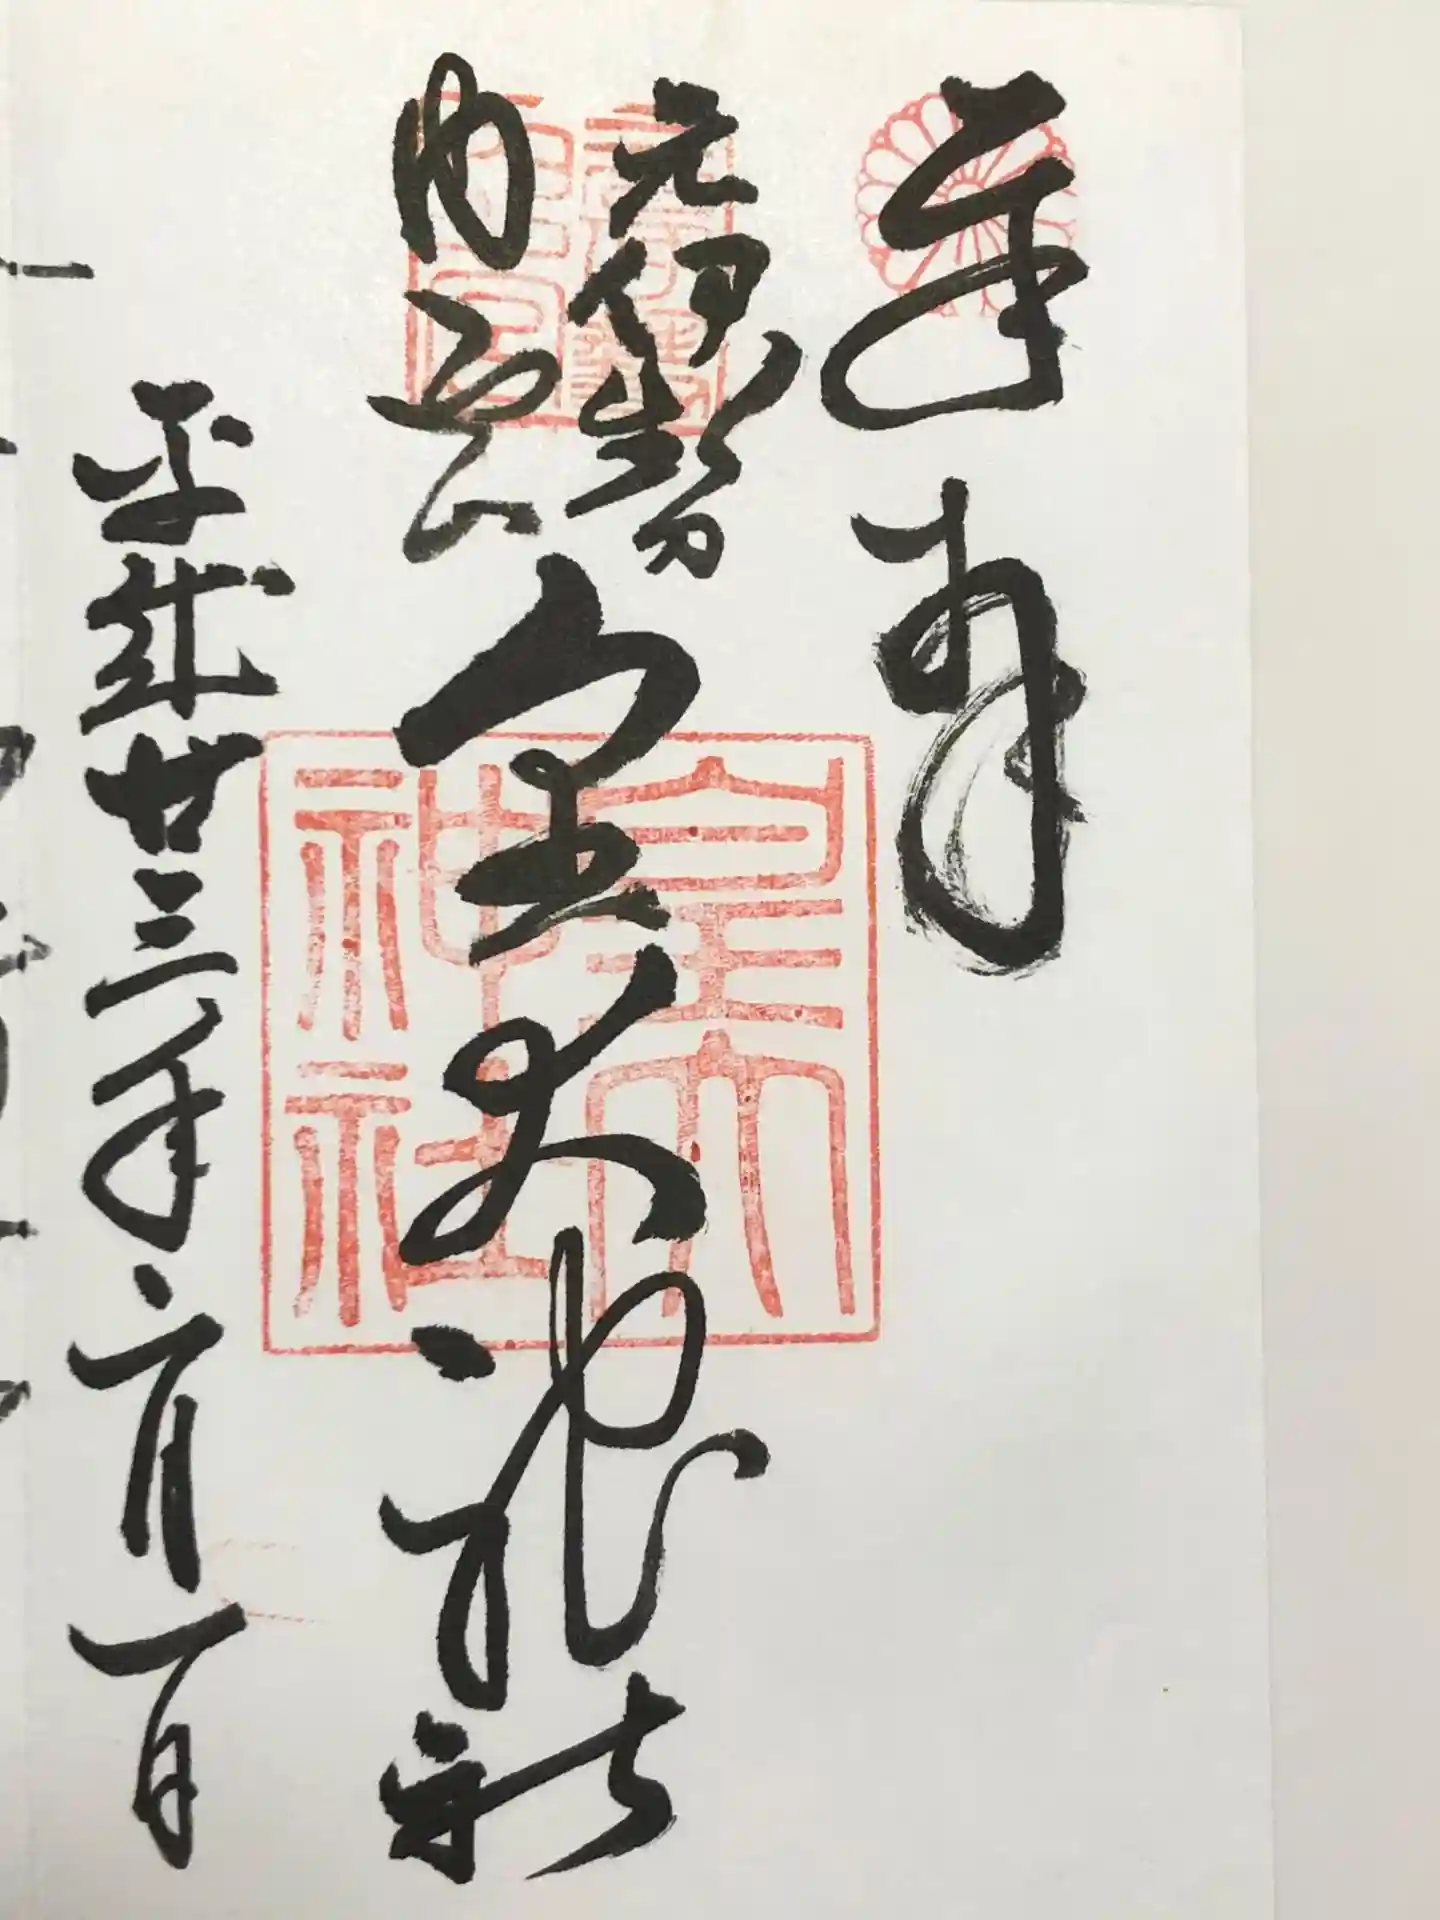 奉拝
元伊勢
内宮
皇大神社
皇大
神社
平成廿三年 月一日